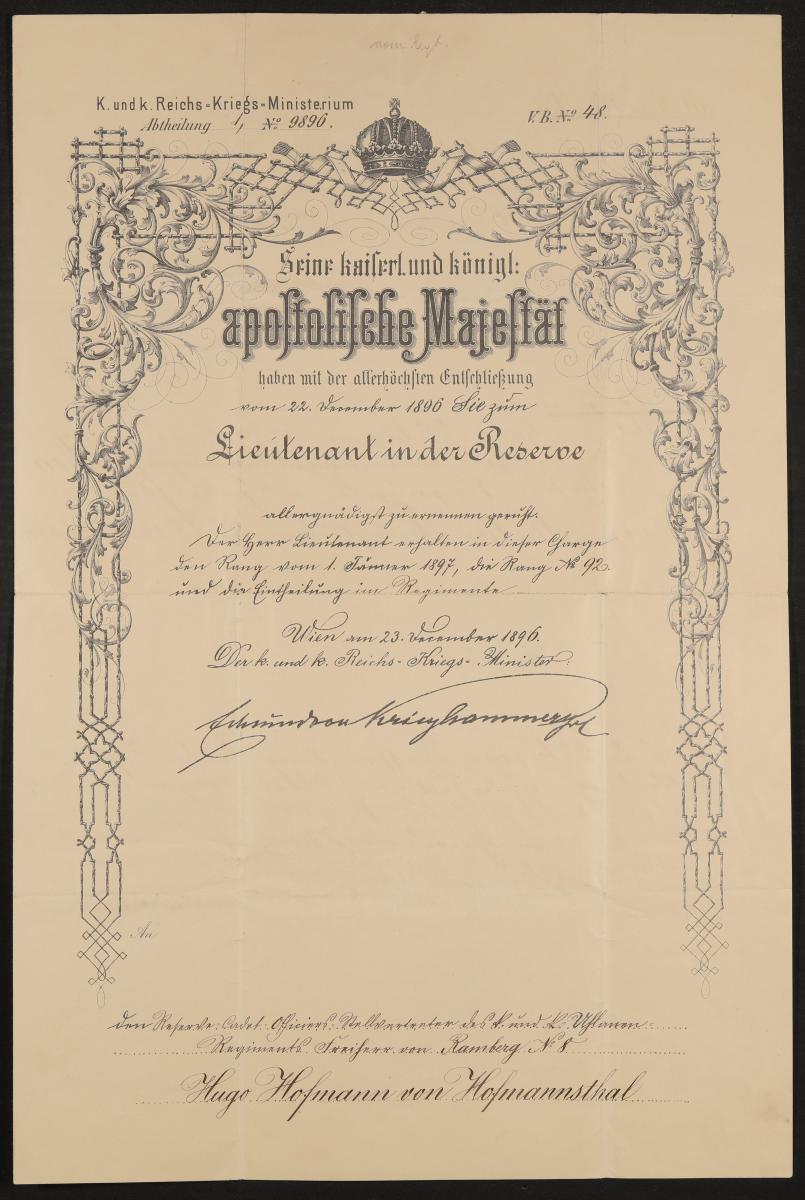 vom Regt.
K. und k. Reichs-Kriegs-Ministerium
Abtheilung 1, No 9896.
V.B. No 48.
Seine kaiserl. und königl:
apostolische Majestät
haben mit der allerhöchsten Entschließung
vom 22. December 1896 Sie zum
Lieutenant in der Reserve
allergnädigst zu ernennen geruht.
Der Herr Lieutenant erhalten in dieser Charge
den Rang vom 1. Jänner 1897, die Rang No 92.
und die Eintheilung im Regimente.
Wien am 23. December 1896.
Der k. und k. Reichs-Kriegs-Minister:
Edmund von Krieghammer
An
den Reserve-Cadet-Officiers-Stellvertreter des k. und k. Uhlanen-
Regiments Freiherr von Ramberg No 8
Hugo Hofmann von Hofmannsthal